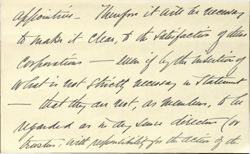 appointees — Therefore it will be necessary
to make it clear, to the satisfaction of
Corporations — even if by the insertion of
what is not strictly necessary in Statement
— that they are not, as members, to be
regarded as in any sense directors (or
Trustees) with responsibility for the action of the